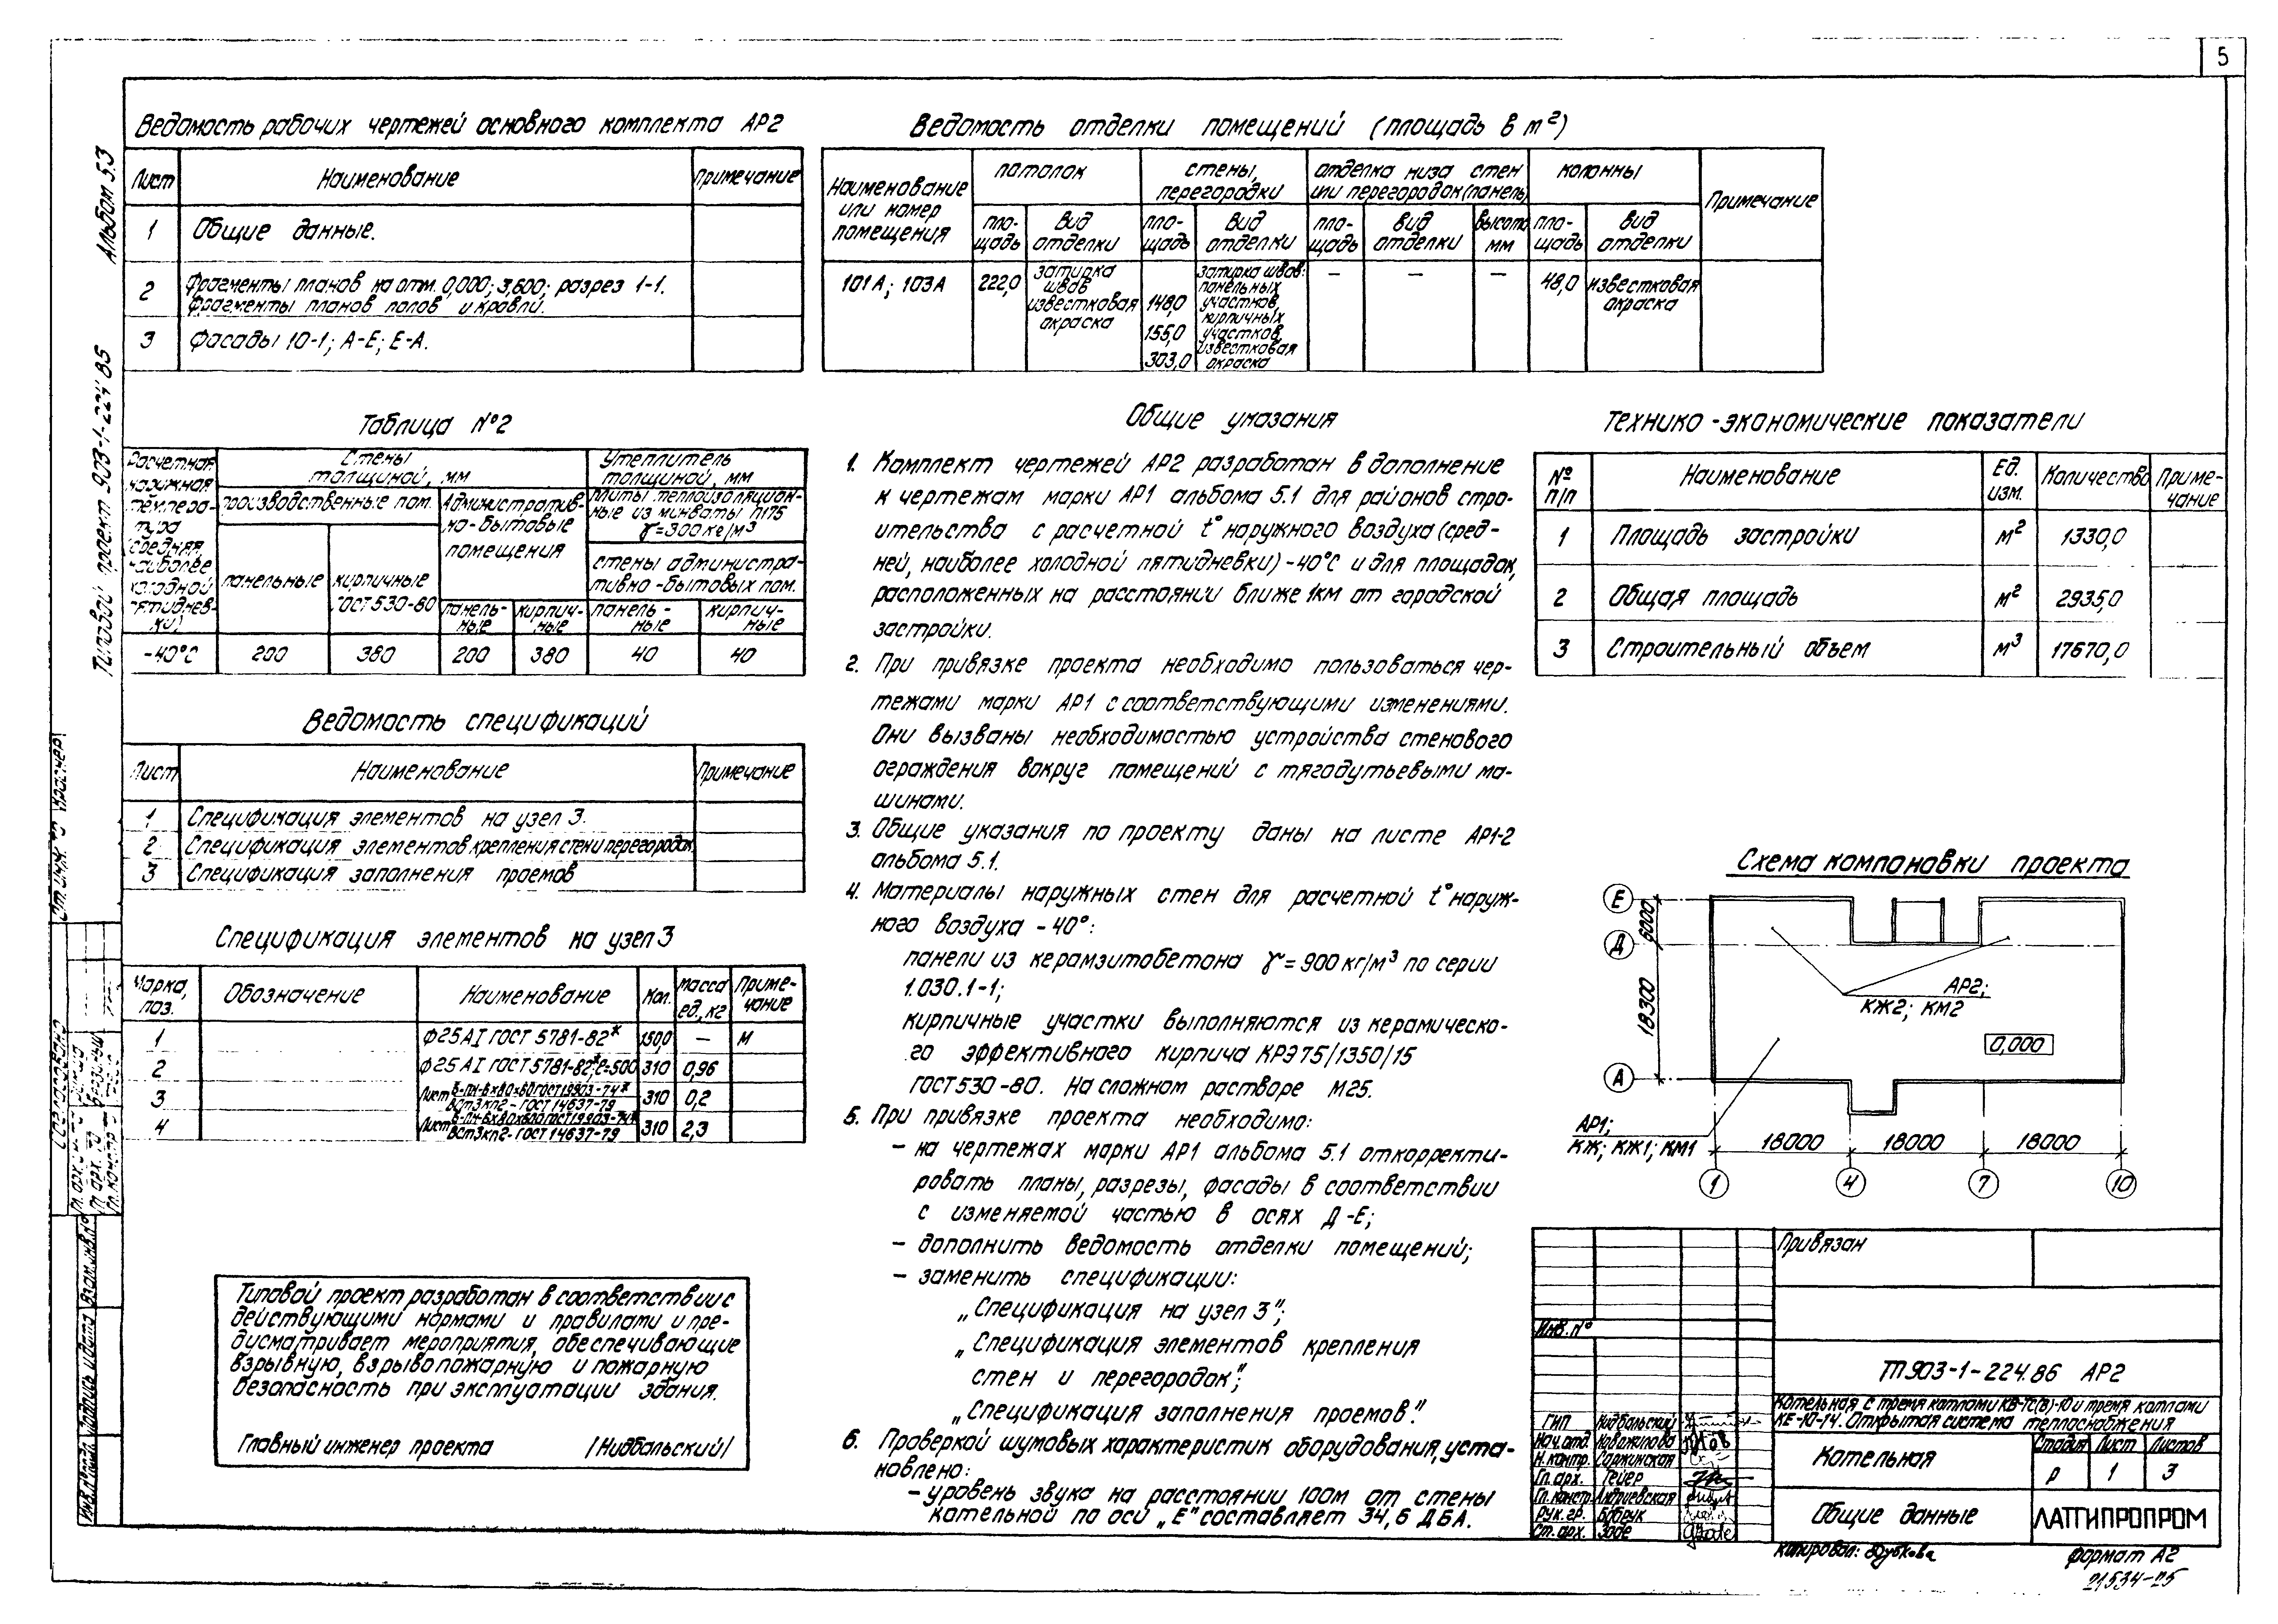 5
Альбом 5.3
Типовой проект 903-1-224 85
Ведомость рабочих чертежей основного комплекта АР2
Лист Наименование Примечание
1 Общие данные.
2 Фрагменты планов на отм. 0,000; 3,600; разрез 1-1.
Фрагменты планов полов и кровли.
3 Фасады 10-1; А-Е; Е-А.
Ведомость отделки помещений (площадь в м²)
Наименование
или номер
помещения
потолок
стены,
перегородки
отделка низа стен
или перегородок (панель)
колонны
Примечание
пло-
щадь
вид
отделки
пло-
щадь
вид
отделки
пло-
щадь
вид
отделки
высота
мм
пло-
щадь
вид
отделки
101А; 103А
222,0
затирка
швов
известковая
окраска
148,0
155,0
303,0
затирка швов:
панельных
участков,
кирпичных
участков,
известковая
окраска
— — —
48,0
известковая
окраска
Таблица №2
Расчетная
наружная
темпера-
тура
(средняя,
наиболее
холодной
пятиднев-
ки)
Стены
толщиной, мм
Утеплитель
толщиной, мм
производственные пом.
Административ-
но-бытовые
помещения
плиты теплоизоляцион-
ные из минваты П175
γ=300кг/м³
панельные
кирпичные
ГОСТ 530-80
стены администра-
тивно-бытовых пом.
панель-
ные
кирпич-
ные
панель-
ные
кирпич-
ные
-40°С 200 380 200 380 40 40
Ведомость спецификаций
Лист Наименование Примечание
1 Спецификация элементов на узел 3.
2 Спецификация элементов крепления стен и перегородок
3 Спецификация заполнения проемов
Спецификация элементов на узел 3
Марка,
поз.
Обозначение
Наименование
Кол.
Масса
ед., кг
Приме-
чание
1 ф25АI ГОСТ 5781-82* 150,0 — м
2 ф25АI ГОСТ 5781-82*; ℓ=500 310 0,96
3 Лист Б-ПН-6х80х60 ГОСТ 19903-74*
ВСт3кп2-ГОСТ 14637-79 310 0,2
4 Лист Б-ПН-6х80х600 ГОСТ 19903-74*
ВСт3кп2-ГОСТ 14637-79 310 2,3
Типовой проект разработан в соответствии с
действующими нормами и правилами и пре-
дусматривает мероприятия, обеспечивающие
взрывную, взрывопожарную и пожарную
безопасность при эксплуатации здания.
Главный инженер проекта /Нидбальский/
Общие указания
1. Комплект чертежей АР2 разработан в дополнение
к чертежам марки АР1 альбома 5.1 для районов стро-
ительства с расчетной t° наружного воздуха (сред-
ней, наиболее холодной пятидневки) -40°С и для площадок,
расположенных на расстоянии ближе 1км от городской
застройки.
2. При привязке проекта необходимо пользоваться чер-
тежами марки АР1 с соответствующими изменениями.
Они вызваны необходимостью устройства стенового
ограждения вокруг помещений с тягодутьевыми ма-
шинами.
3. Общие указания по проекту даны на листе АР1-2
альбома 5.1.
4. Материалы наружных стен для расчетной t° наруж-
ного воздуха -40°:
панели из керамзитобетона γ=900кг/м³ по серии
1.030.1-1;
кирпичные участки выполняются из керамическо-
го эффективного кирпича КРЭ 75/1350/15
ГОСТ 530-80. На сложном растворе М25.
5. При привязке проекта необходимо:
– на чертежах марки АР1 альбома 5.1 откорректи-
ровать планы, разрезы, фасады в соответствии
с изменяемой частью в осях Д-Е;
– дополнить ведомость отделки помещений;
– заменить спецификации:
„Спецификация на узел 3";
„Спецификация элементов крепления
стен и перегородок";
„Спецификация заполнения проемов."
6. Проверкой шумовых характеристик оборудования, уста-
новлено:
– уровень звука на расстоянии 100м от стены
котельной по оси „Е" составляет 34,6 ДБА.
Технико-экономические показатели
№
п/п
Наименование
Ед.
изм.
Количество
Приме-
чание
1 Площадь застройки м² 1330,0
2 Общая площадь м² 2935,0
3 Строительный объем м³ 17670,0
Схема компановки проекта
Е
6000
Д
18300
А
АР2;
КЖ2; КМ2
0,000
АР1;
КЖ; КЖ1; КМ1
18000 18000 18000
1 4 7 10
Привязан
Инв.№
ТП 903-1-224.86 АР2
Котельная с тремя котлами КВ-ТС(В)-10 и тремя котлами
КЕ-10-14. Открытая система теплоснабжения
ГИП Нидбальский
Нач.отд. Новожилова
Н.контр. Саржинская
Гл.арх. Гейер
Гл.констр. Андриевская
Рук.гр. Бобрук
Ст.арх. Заде
Котельная
Стадия Лист Листов
Р 1 3
Общие данные
ЛАТГИПРОПРОМ
Копировал: Зубкова
формат А2
21534-25
Согласовано
Инв.№ подл. Подпись и дата Взам.инв.№